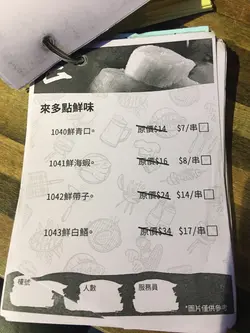 來多點鮮味
1040鮮青口。 原價$14 $7/串
1041鮮海蝦。 原價$16 $8/串
1042鮮帶子。 原價$24 $14/串
1043鮮白鱔。 原價$34 $17/串
檯號 人數 服務員
*圖片僅供參考